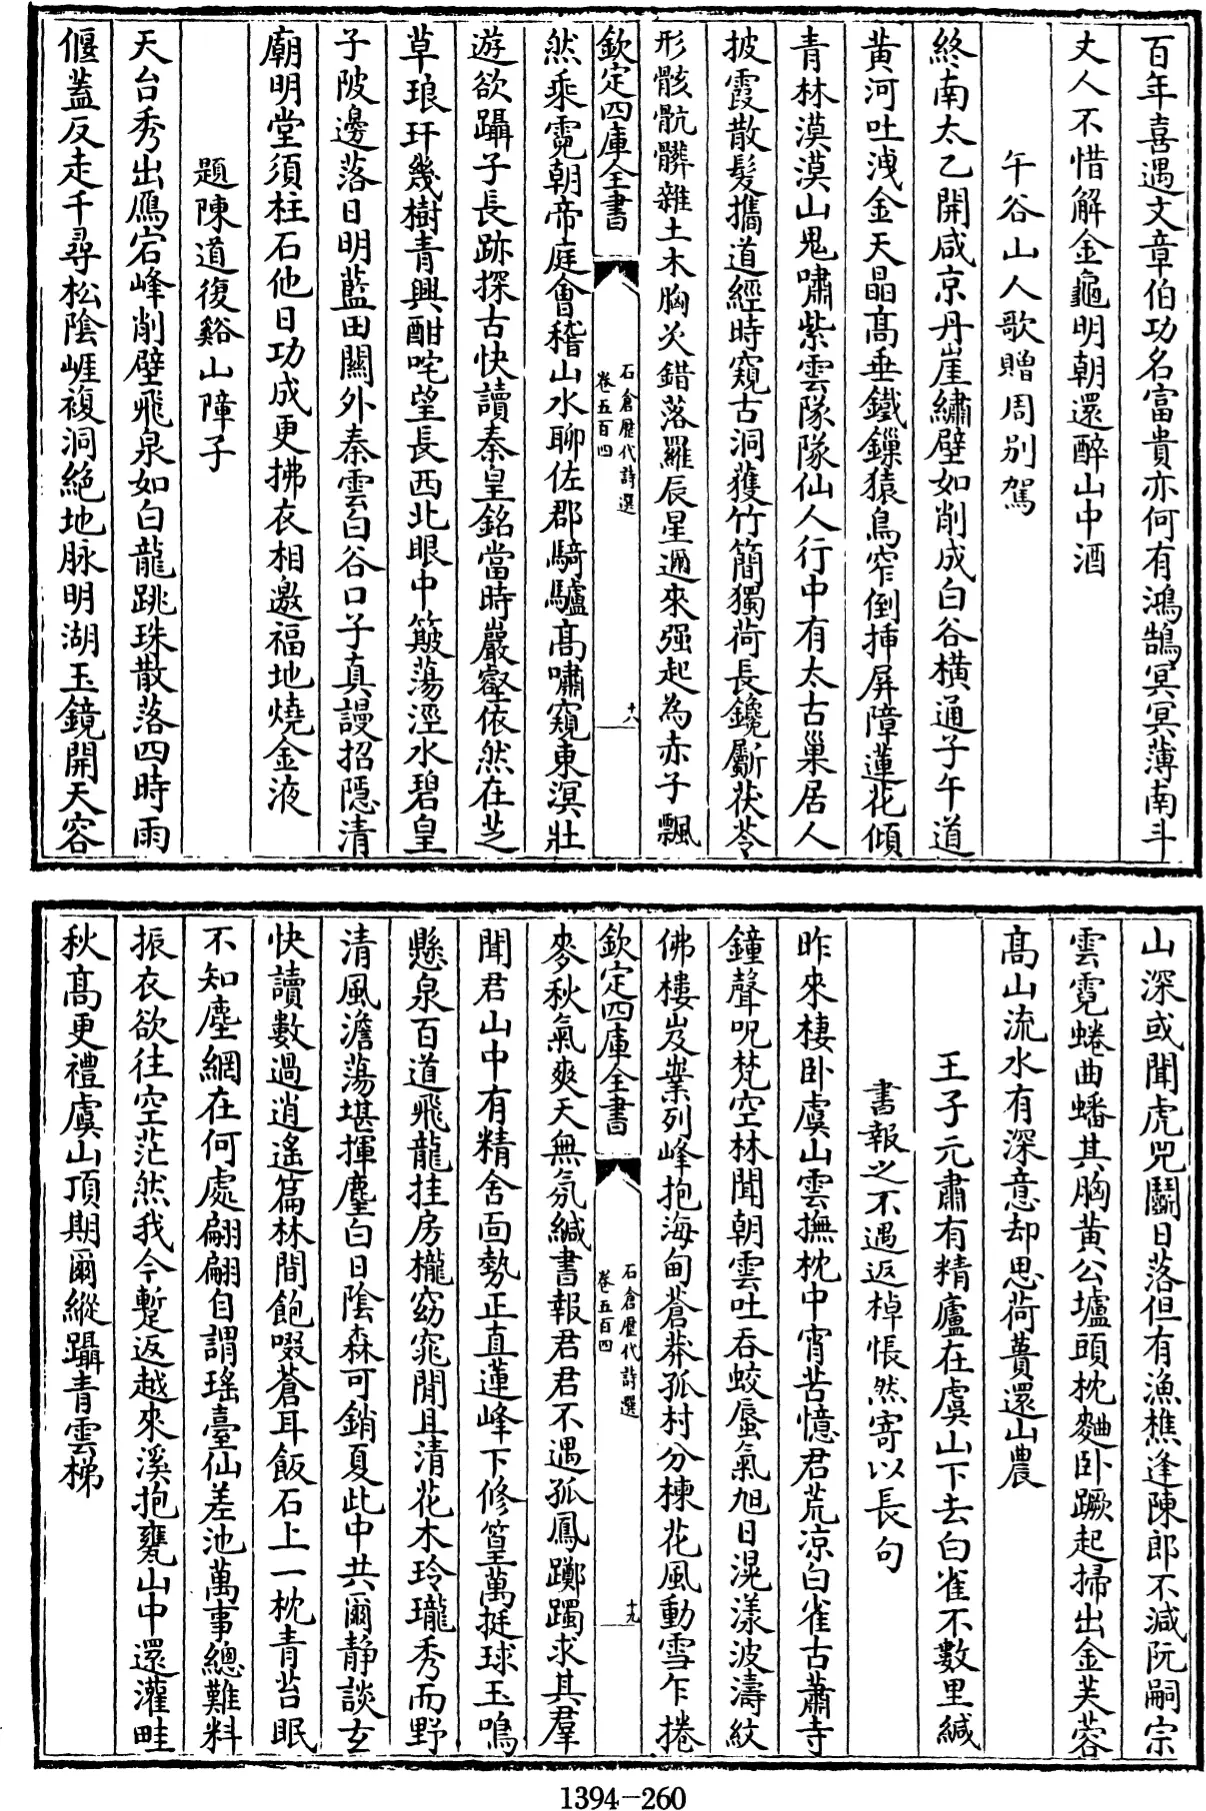 百年喜遇文章伯功名富貴亦何有鴻鵠冥冥薄南斗
丈人不惜解金龜明朝還醉山中酒
午谷山人歌贈周别駕
終南太乙開咸京丹崖繡壁如削成白谷橫通子午道
黄河吐洩金天晶高垂鐵鏁猿鳥窄倒揷屏障蓮花傾
青林漠漠山鬼嘯紫雲隊隊仙人行中有太古巢居人
披霞散髮攜道經時窺古洞獲竹簡獨荷長鑱斸茯苓
形骸骯髒雜土木胸次錯落羅辰星邇來强起為赤子飄
欽定四庫全書
石倉歷代詩選
卷五百四
十八
然乘霓朝帝庭會稽山水聊佐郡騎驢高嘯窺東溟壯
遊欲躡子長跡探古快讀秦皇銘當時巖壑依然在芝
草琅玕幾樹青興酣咤望長西北眼中簸蕩涇水碧皇
子陂邊落日明藍田關外秦雲白谷口子真謾招隱清
廟明堂須柱石他日功成更拂衣相邀福地燒金液
題陳道復谿山障子
天台秀出鴈宕峰削壁飛泉如白龍跳珠散落四時雨
偃蓋反走千尋松陰崕複洞絶地脉明湖玉鏡開天容
山深或聞虎兕鬭日落但有漁樵逢陳郎不減阮嗣宗
雲霓蜷曲蟠其胸黄公壚頭枕麴卧蹶起掃出金芙蓉
高山流水有深意却思荷蕢還山農
王子元肅有精廬在虞山下去白雀不數里緘
書報之不遇返棹悵然寄以長句
昨來棲卧虞山雲撫枕中宵苦憶君荒凉白雀古蕭寺
鐘聲呪梵空林聞朝雲吐吞蛟蜃氣旭日滉漾波濤紋
佛樓岌嶪列峰抱海甸蒼莽孤村分楝花風動雪乍捲
欽定四庫全書
石倉歷代詩選
卷五百四
十九
麥秋氣爽天無氛緘書報君君不遇孤鳳躑躅求其羣
聞君山中有精舍面勢正直蓮峰下修篁萬挺球玉鳴
懸泉百道飛龍挂房櫳窈窕閒且清花木玲瓏秀而野
清風澹蕩堪揮麈白日陰森可銷夏此中共爾静談玄
快讀數過逍遙篇林間飽啜蒼耳飯石上一枕青苔眠
不知塵網在何處翩翩自謂瑶臺仙差池萬事總難料
振衣欲往空茫然我今蹔返越來溪抱甕山中還灌畦
秋高更禮虞山頂期爾縱躡青雲梯
1394-260